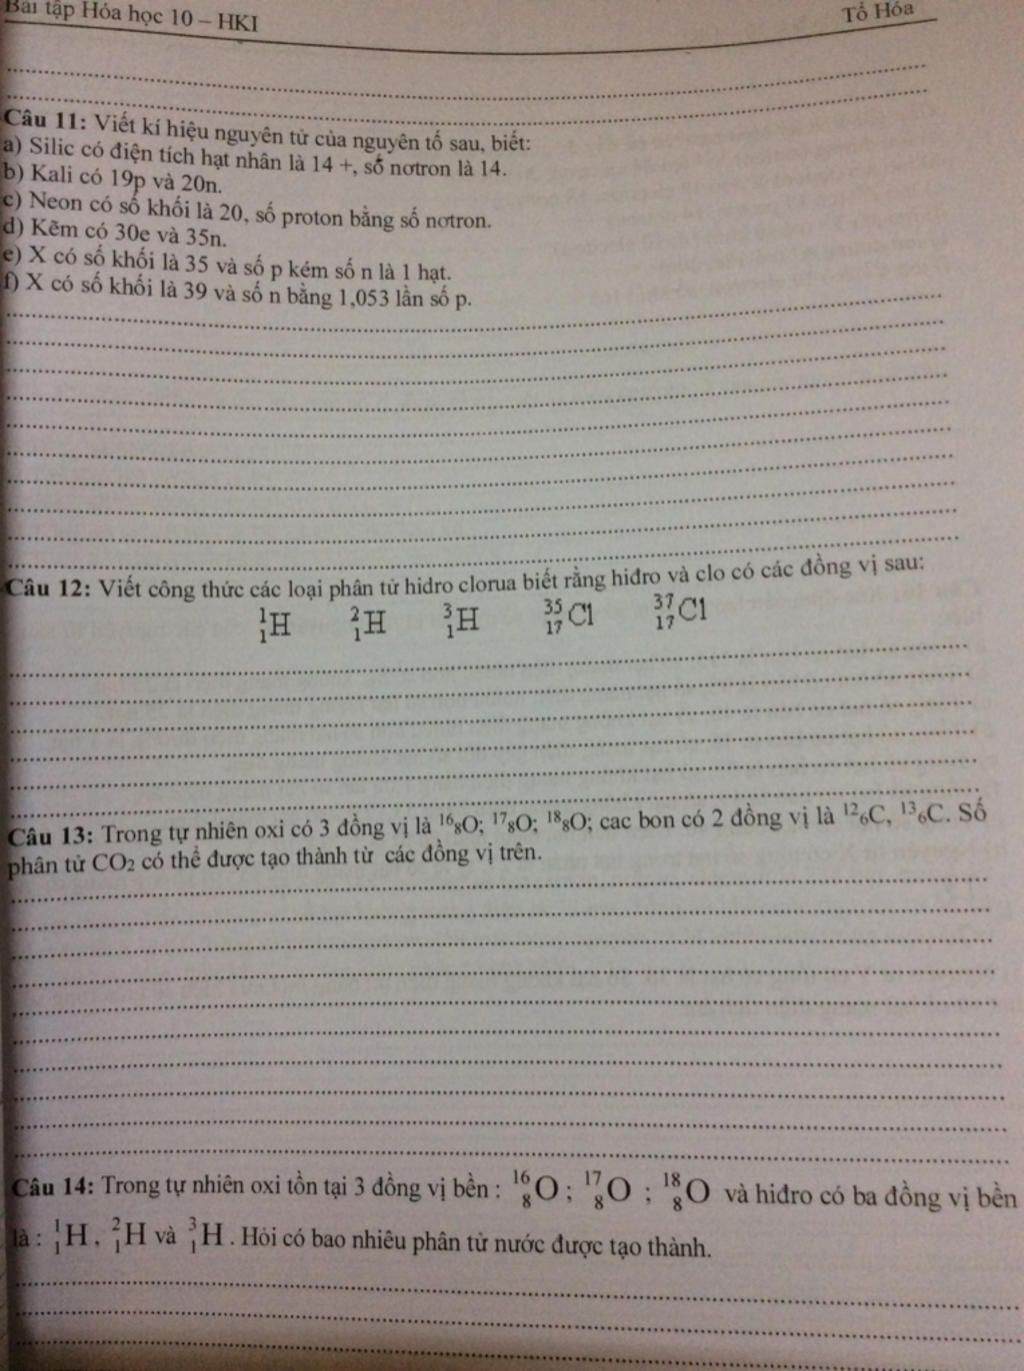 Bài tập Hóa học 10 – HKI
Tổ Hóa
Câu 11: Viết kí hiệu nguyên tử của nguyên tố sau, biết:
a) Silic có điện tích hạt nhân là 14 +, số nơtron là 14.
b) Kali có 19p và 20n.
c) Neon có số khối là 20, số proton bằng số nơtron.
d) Kẽm có 30e và 35n.
e) X có số khối là 35 và số p kém số n là 1 hạt.
f) X có số khối là 39 và số n bằng 1,053 lần số p.
Câu 12: Viết công thức các loại phân tử hidro clorua biết rằng hiđro và clo có các đồng vị sau:
¹₁H ²₁H ³₁H ³⁵₁₇Cl ³⁷₁₇Cl
Câu 13: Trong tự nhiên oxi có 3 đồng vị là ¹⁶₈O; ¹⁷₈O; ¹⁸₈O; cac bon có 2 đồng vị là ¹²₆C, ¹³₆C. Số
phân tử CO₂ có thể được tạo thành từ các đồng vị trên.
Câu 14: Trong tự nhiên oxi tồn tại 3 đồng vị bền : ¹⁶₈O ; ¹⁷₈O ; ¹⁸₈O và hiđro có ba đồng vị bền
là : ¹₁H , ²₁H và ³₁H . Hỏi có bao nhiêu phân tử nước được tạo thành.